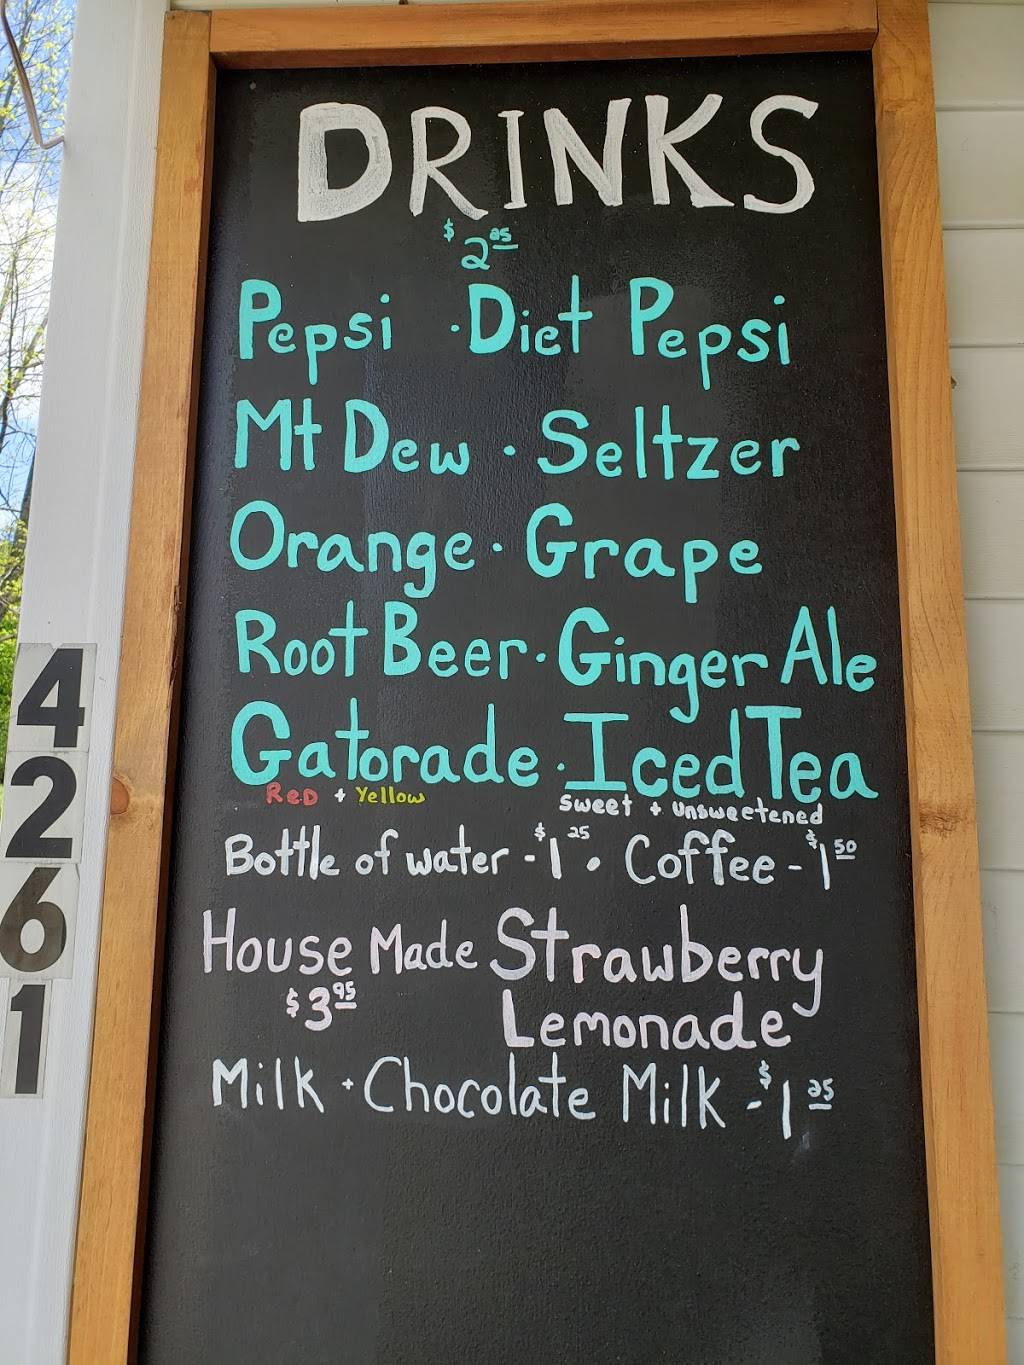 DRINKS
$2.25
Pepsi · Diet Pepsi
Mt Dew · Seltzer
Orange · Grape
Root Beer · Ginger Ale
Gatorade · Iced Tea
Red + Yellow Sweet + Unsweetened
Bottle of water - $1.25 · Coffee - $1.50
House Made Strawberry
$3.95 Lemonade
Milk + Chocolate Milk - $1.25
4
2
6
1